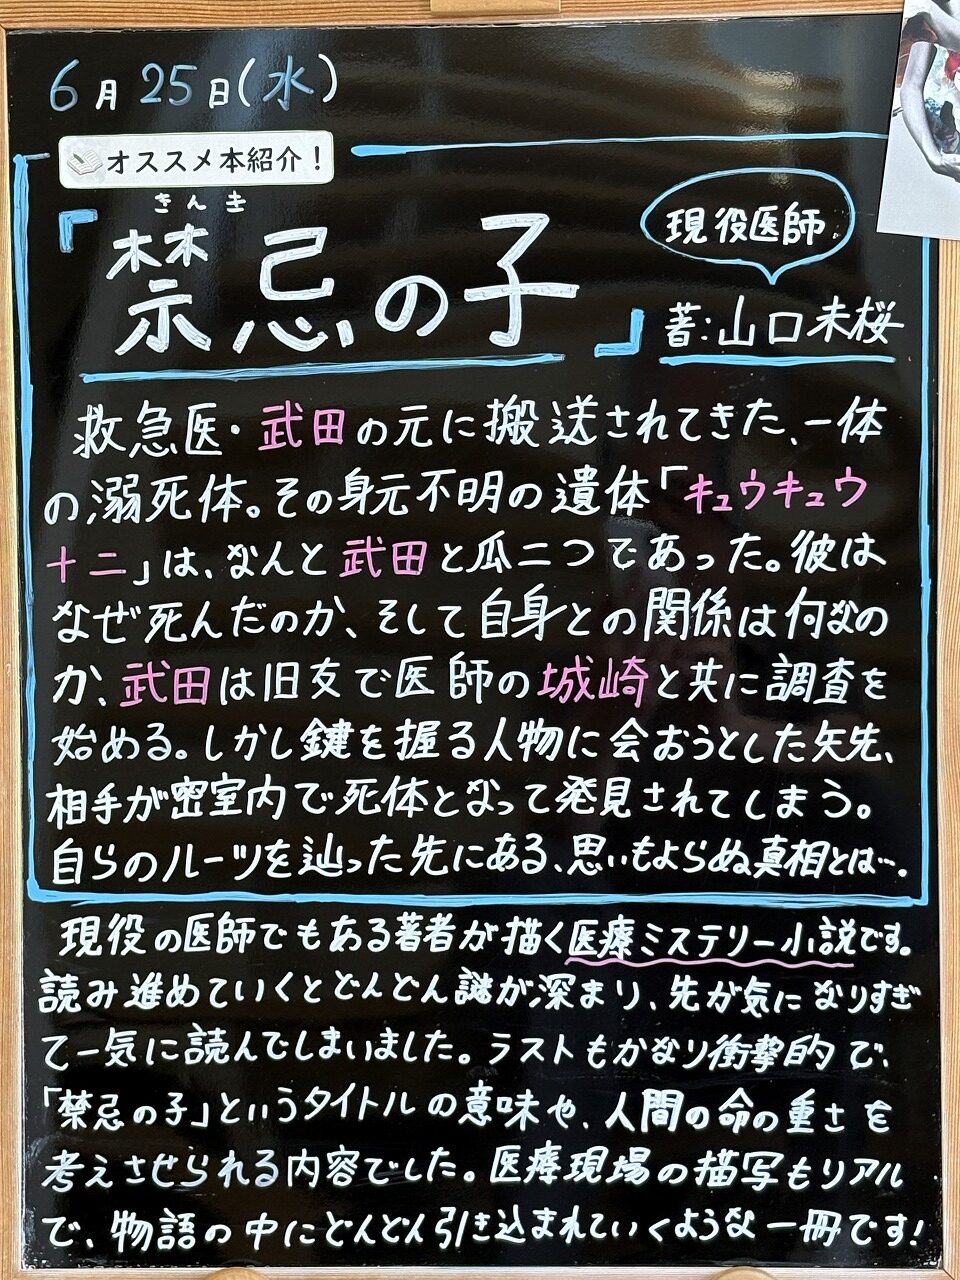 6月25日(水)
オススメ本紹介！
きんき
『禁忌の子』
現役医師
著:山口未桜
救急医・武田の元に搬送されてきた、一体
の溺死体。その身元不明の遺体「キュウキュウ
十二」は、なんと武田と瓜二つであった。彼は
なぜ死んだのか、そして自身との関係は何なの
か、武田は旧友で医師の城崎と共に調査を
始める。しかし鍵を握る人物に会おうとした矢先、
相手が密室内で死体となって発見されてしまう。
自らのルーツを辿った先にある、思いもよらぬ真相とは…。
現役の医師でもある著者が描く医療ミステリー小説です。
読み進めていくとどんどん謎が深まり、先が気になりすぎ
て一気に読んでしまいました。ラストもかなり衝撃的で、
「禁忌の子」というタイトルの意味や、人間の命の重さを
考えさせられる内容でした。医療現場の描写もリアル
で、物語の中にどんどん引き込まれていくような一冊です!